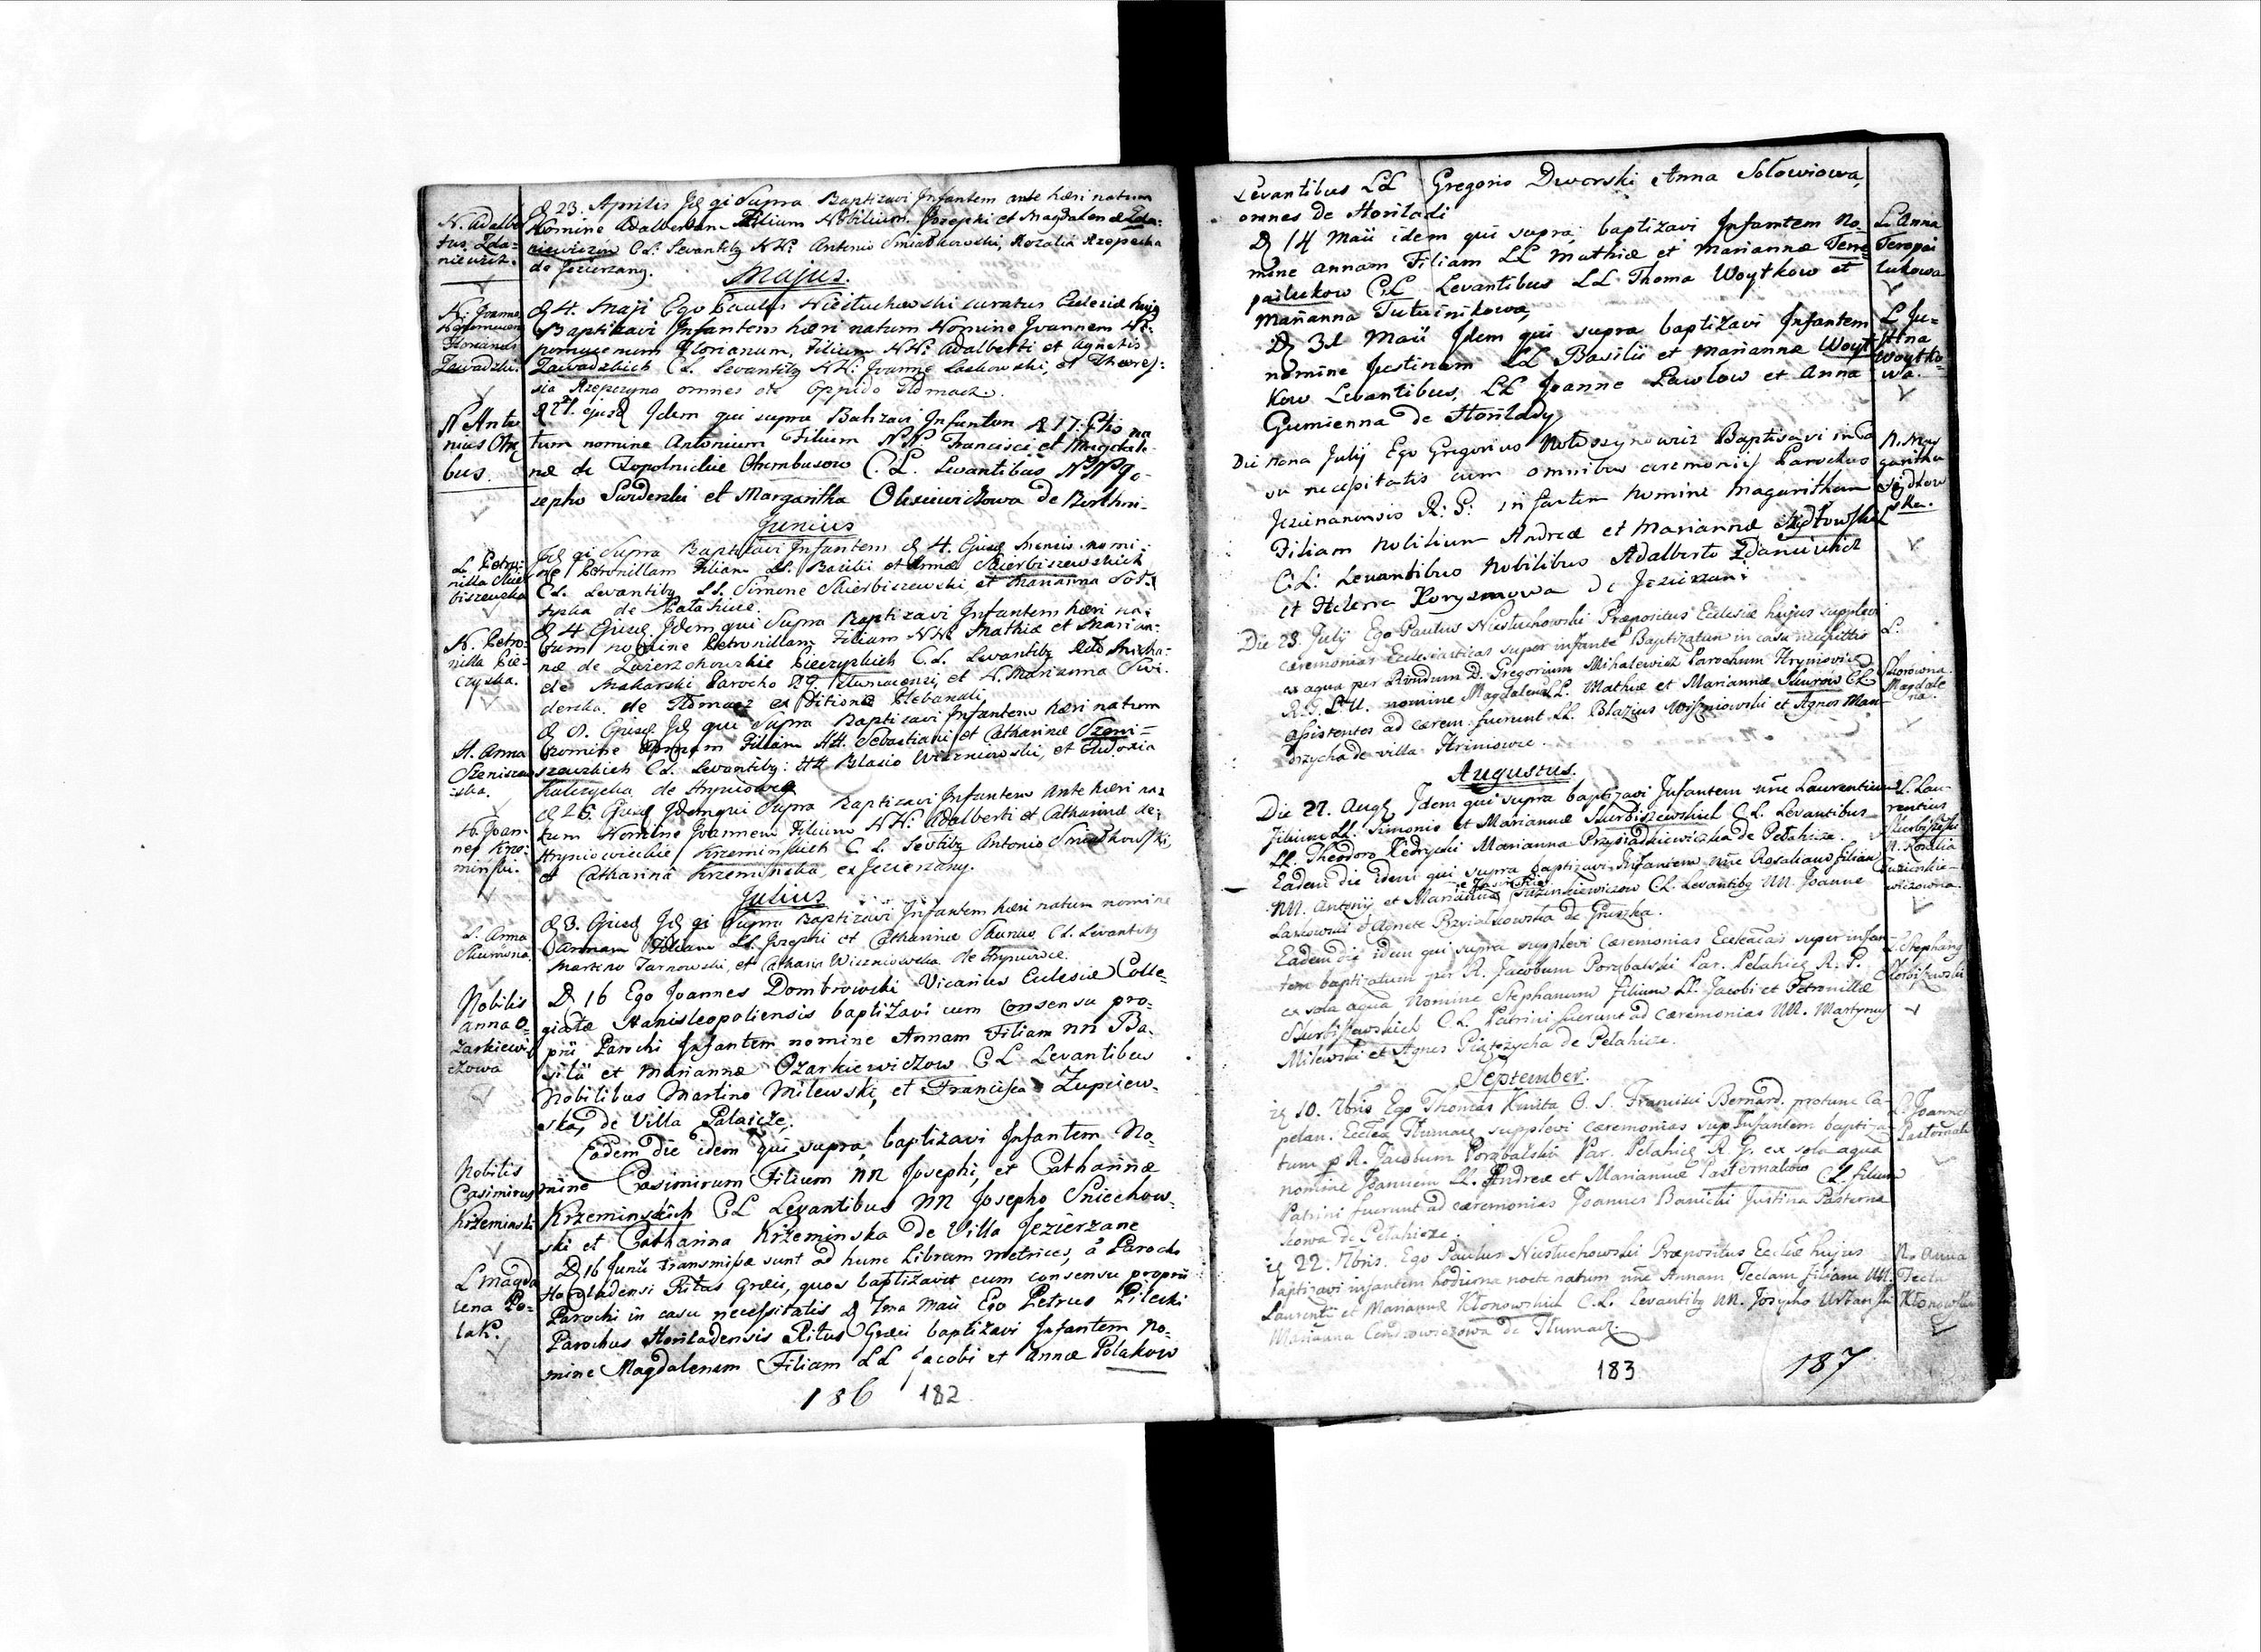 N. Adalber
tus Zda=
niewicz.
D 23. Aprilis Jd qi Supra Baptizavi Infantem ante heri natum
Nomine Adalbertum Filium Nobilium Josephi et Magdalenæ Zda=
niewiczow C.L. Levantiby NN: Antonio Sniadkowski, Rozalia Rzepecka
de Jezierzany.
Majus.
N. Joannes
Nepomucen
Florianus
Zawadzki.
D 4. Maji Ego Paulus Niesluchowski curatus Ecclesiæ hujq
Baptizavi Infantem heri natum Nomine Joannem Ne=
pomucenum Florianum, Filium NN: Adalberti et Agnetis
Zawadzkich C.L. Levantiby NN: Joanne Laskowski, et Theres:
sia Rzepczyna omnes ex Oppido Tłomacz.
N Anto
nius
bus.
D 21. ejusd Idem qui supra Batizavi Infantem D 17. na
tum nomine Antonium Filium NN. Francisci et Magdale
næ de Topolnickie Chembusow C.L. Levantibus NN Jo-
sepho Swiderski et Margaritha Olesiewiczowa de
Junius
L. Petro:
nilla Skier
biszewska
Jd qi Supra Baptizavi Infantem D 4. Ejusd Mensis nomi=
ne Petronillam Filiam LL. Basilii et Annæ Skierbiszewskich
CL. Levantiby LL. Simone Skierbiszewski et Marianna
de Pałahicze.
N. Petro=
nilla Pie=
czyska.
D 4 Ejusd Idem qui Supra Baptizavi Infantem heri na=
tum nomine Petronillam Filiam NN. Mathiæ et Marian=
næ de Zwierzchowskie Pieczyskich C.L. Levantiby Micha=
de Makarski Parocho RG. et N. Marianna Swi=
derska de Tłomacz ex Ditione Plebanali
N. Anna
Szeniszew
ska.
D 8. Ejusd Jd qui Supra Baptizavi Infantem heri natum
nomine Annam Filiam NN. Sebastiani et Catharinæ Szeni=
szewskich C.L. Levantiby: NN Blasio Wiszniowski, et Eudoxia
de Hryniowce
N. Joan=
nes Krze=
minski.
D 26. Ejusd Idem qui Supra Baptizavi Infantem Ante heri na=
tum Nomine Joannem Filium NN: Adalberti et Catharinæ de=
Hryniowieckie Krzeminskich C.L. Levtiby Antonio Sniadkowski
et Catharina Krzeminska, ex Jezierzany.
Julius
L. Anna
Skurowna
D 3. Ejusd Jd qi Supra Baptizavi Infantem heri natum nomine
Annam Filiam LL. Josephi et Catharinæ Skurow C.L. Levantiby
Martino Tarnowski, et Cathar. Wiszniowska de Hryniowce.
Nobilis
Anna O=
zarkiewi
czowa
D 16 Ego Joannes Dombrowski Vicarius Ecclesiæ Colle=
giatæ Stanisleopoliensis baptizavi cum consensu pro=
prii Parochi Infantem nomine Annam Filiam NN Ba=
silii et Mariannæ Ozarkiewiczow C.L. Levantibus
Nobilibus Martino Milewski, et Francisca Zupciew=
ska, de Villa Palaicze.
Nobilis
Casimirus
Krzeminski
Eadem Die idem qui supra, baptizavi Infantem No=
mine Casimirum Filium NN Josephi, et Catharinæ
Krzeminskich C.L. Levantibus NN Josepho Sniechow=
ski et Catharina Krzeminska de Villa Jezierzane
L Magda
lena Po=
lak.
D 16 Junii transmisæ sunt ad hunc Librum metrices, à Parocho
Hostladensi Ritus Græci, quos baptizavit cum consensu proprii
Parochi in casu necessitatis D 7ma Maii Ego Petrus Pilecki
Parochus Hostladensis Ritus Græci baptizavi Infantem No=
mine Magdalenam Filiam LL Jacobi et Annæ Polakow
186 182
Levantibus LL Gregorio Dworski Anna Sołowiowa,
omnes de Hostladi
D 14 Maii idem qui supra, baptizavi Infantem No=
mine Annam Filiam LL Mathiæ et Mariannæ Tere=
pailukow C.L. Levantibus LL Thoma Woytkow et
Marianna Tutuinikowa,
L. Anna
Terepai
lukowa
D 31 Maii Idem qui supra baptizavi Infantem
nomine Justinam LL Basilii et Mariannæ Woyt
kow Levantibus, LL Joanne Pawlow et Anna
Gumienna de Hostlady
L Ju=
stina
Woytko=
wa.
Die nona Julij Ego Gregorius Wołoszynowicz Baptisavi in Ca
su necessitatis cum omnibus ceremonijs Parochus
Jezieranensis R: G: infantem nomine Magaritham
Filiam Nobilium Andreæ et Mariannæ
C.L: Levantibus Nobilibus Adalberto Zdaniewicz
et Helena Koryzmowa De Jezierzani
N. Mar
garitha
ska.
Die 23 July Ego Paulus Niesłuchowski Præpositus Ecclesiæ hujus supplevi
cæremonias Ecclesiasticas super infante Baptizatum in casu necessittis
ex aqua per Rndum D. Gregorium Mihalewicz Parochum Hrynioviæ
R.G. nomine Magdalena LL. Mathiæ et Mariannæ Skurow CL
assistentes ad cærem. fuerunt LL. Blazius Wiszniowski et Agnes Man=
drzycha de villa Hriniowce.
L.
Skorowna
Magdale
na.
Augustus.
Die 22. Augs Idem qui supra baptizavi Infantem nne Laurentium
Filium LL. Simonis et Mariannæ Skurbiszewskich C.L. Levantibus
LL. Theodoro Kedrycki Marianna Przysiadkiewiczka de Pełahicze.
L. Lau=
rentius
Skurbiszeski
Eadem die idem qui supra baptizavi Infantem nne Rosaliam filiam
NN. Antonij et Mariannæ Juzinkiewiczow C.L. Levantiby NN. Joanne
Laskowski & Agnete Przyialkowska de Gruszka.
N. Rosalia
Juzienkie=
wiczowna.
Eadem die idem qui supra supplevi cæremonias Eccleticas super infan=
tem baptizatum per R. Jacobum Porabalski Par. Pełahicz R. G.
ex sola aqua nomine Stephanum filium LL. Jacobi et Petronillæ
Skurbiszewskich C.L. Patrini fuerunt ad cæremonias NN. Martyny
Milewski et Agnes Piatczycha de Pełahicze.
L. Stephang
Skorbiszewski
September.
10. 7bris Ego Thomas Kmita O. S. Francisci Bernard. protunc Ca=
pelan. Ecclea Tłumacz supplevi cæremonias sup Infantem baptiza=
tum p R. Jacobum Porąbalski Par. Pełahicz R. G. ex sola aqua
nomine Joannem LL. Andreæ et Mariannæ Pasternakow CL. filium
Patrini fuerunt ad cæremonias Joannes Banicki Justina Pasterna
kowa de Pełahicze.
L. Joannes
Pasternak
22. 7bris. Ego Paulus Niesłuchowski Præpositus Eccliæ hujus
baptizavi infantem hodierna nocte natum nne Annam Teclam filiam NN.
Laurentii et Mariannæ Kłonowskich C.L. Levantiby NN. Josepho Urbanski
Marianna Cendrowiczowa de Tłumacz.
N. Anna
Tecla
Kłonowska
183 187